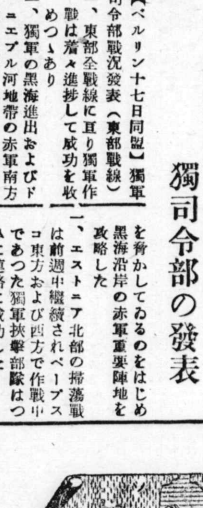 獨司令部の發表
【ベルリン十七日同盟】獨軍
司令部戰況發表(東部戰線)
、東部全戰線に亘り獨軍作
戰は着々進捗して成功を收
めつゝあり
一、獨軍の黑海進出およびド
ニエプル河地帶の赤軍南方
を脅かしてゐるのをはじめ
黑海沿岸の赤軍重要陣地を
攻略した
一、エストニア北部の掃蕩戰
は前週中繼續されペープス
コ東方および西方で作戰中
であつた獨軍挾擊部隊はつ